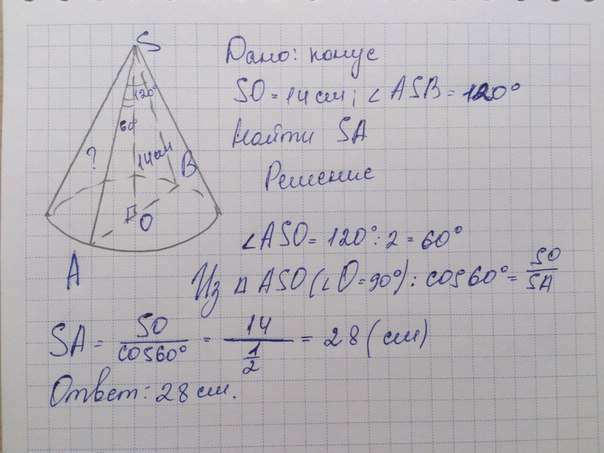 S
120°
60°
?
14см
B
O
A
Дано: конус
SO = 14 см; ∠ASB = 120°
Найти SA
Решение
∠ASO = 120° : 2 = 60°
Из △ ASO (∠O = 90°): cos60° = SO/SA
SA = SO/cos60° = 14/(1/2) = 28 (см)
Ответ: 28 см.